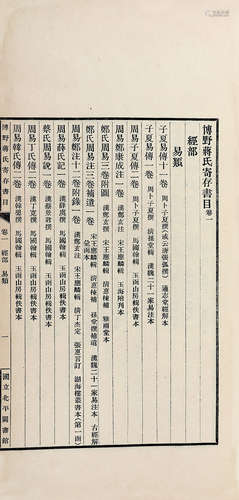 博野蔣氏寄存書目卷一
經部
易類
子夏易傳十一卷 周卜子夏撰(或云唐張弧撰) 通志堂經解本
子夏易傳一卷 周卜子夏撰 清孫堂輯 漢魏二十一家易注本
周易子夏傳二卷 周卜子夏撰 馬國翰輯 玉函山房輯佚書本
周易鄭康成注一卷 漢鄭玄注 宋王應麟輯 玉海附刊本
鄭氏周易三卷附圖 漢鄭玄注 宋王應麟輯 清惠棟補 雅雨堂本
鄭氏周易注三卷補遺一卷 宋王應麟輯 清惠棟補 孫堂補遺 漢魏二十一家易注本 古經解彙函本
周易鄭注十二卷附錄一卷 漢鄭玄注 宋王應麟輯 清丁杰定 張惠言訂 湖海樓叢書本(第一函)
周易薛氏記一卷 馬國翰輯 玉函山房輯佚書本
蔡氏易說一卷 漢蔡景君撰 馬國翰輯 玉函山房輯佚書本
周易丁氏傳二卷 漢丁寬撰 馬國翰輯 玉函山房輯佚書本
周易韓氏傳二卷 漢韓嬰撰 馬國翰輯 玉函山房輯佚書本
博野蔣氏寄存書目 卷一 經部 易類 一 國立北平圖書館